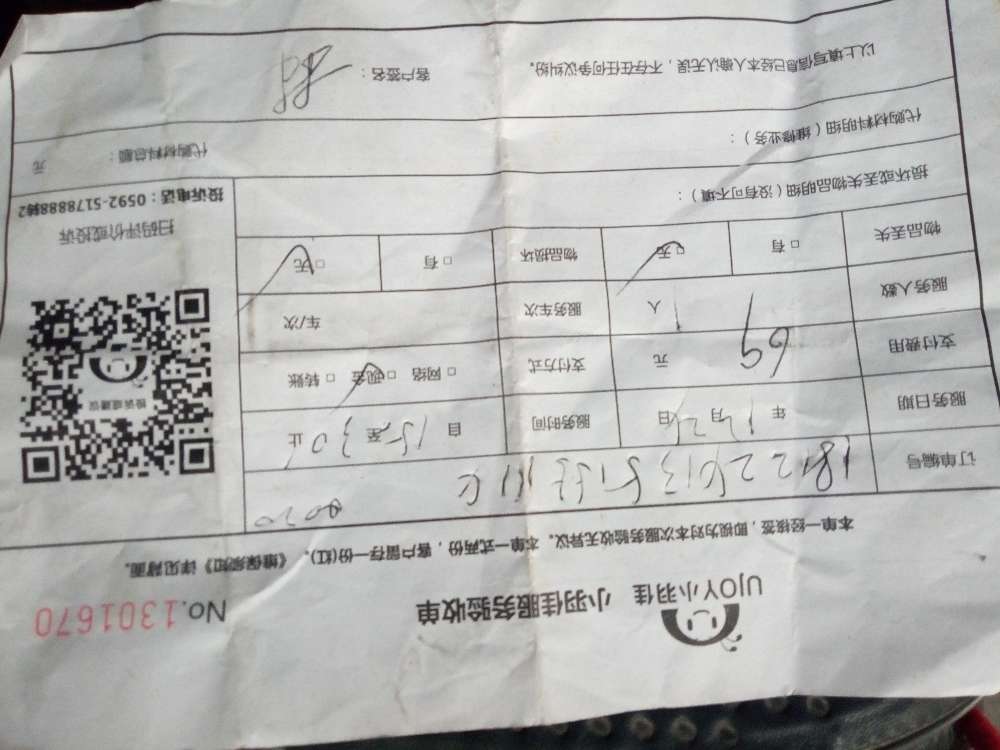 UJOY小羽佳 小羽佳服务验收单 No.1301670
本单一经接签，即视为对本次服务验收无异议。本单一式两份，客户留存一份(红)。《维保须知》详见背面。
订单编号
服务日期 年 1月 日 服务时间 自 15 至 30 止
支付费用 69 元 支付方式 □ 网络 □ 现金 □ 转账
服务人数 1 人 服务车次 车/次
物品丢失 □ 有 □ 无 物品损坏 □ 有 □ 无
投诉或建议
扫码评价或投诉
投诉电话：0592-5178888转2
损坏或丢失物品明细（没有可不填）：
代购材料明细（维修业务）： 代购材料总额： 元
以上填写信息已经本人确认无误，不存在任何争议纠纷。 客户签名：